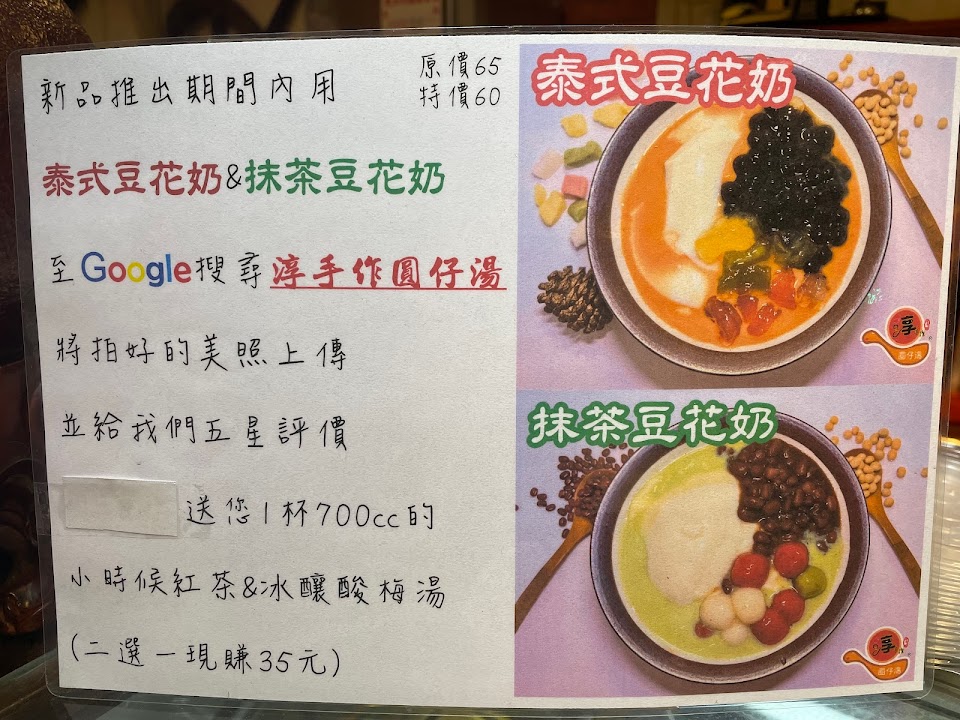 新品推出期間內用
原價65
特價60
泰式豆花奶&抹茶豆花奶
至Google搜尋淳手作圓仔湯
將拍好的美照上傳
並給我們五星評價
送您1杯700cc的
小時候紅茶&冰釀酸梅湯
(二選一現賺35元)
泰式豆花奶
淳
圓仔湯
抹茶豆花奶
淳
圓仔湯